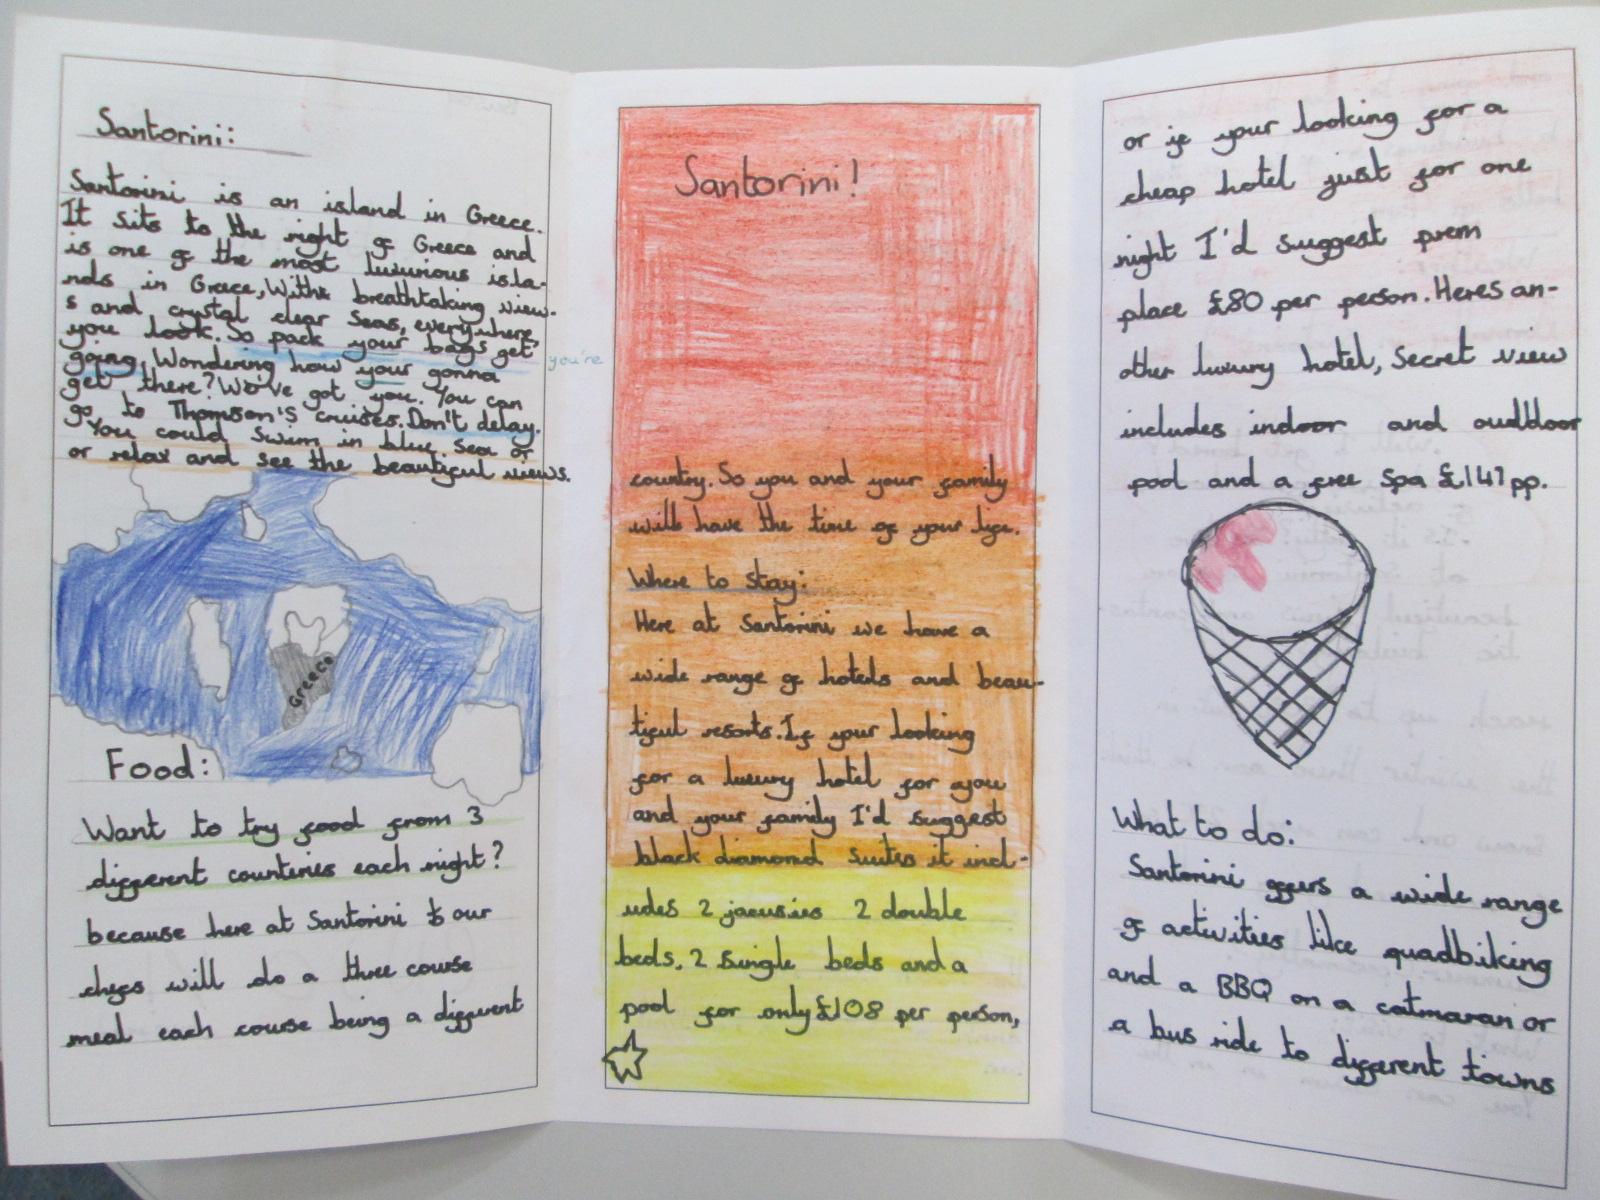 Santorini:
Santorini is an island in Greece.
It sits to the right of Greece and
is one of the most luxurious isla-
nds in Greece, Withs breathtaking view-
s and crystal clear Seas, everywhere,
you look. So pack your bags get
going. Wondering how your gonna
you're
get there? We've got you. You can
go to Thomson's cruises. Don't delay.
You could Swim in blue Sea or
or relax and see the beautiful views.
Greece
Food:
Want to try food from 3
different countries each night?
because here at Santorini our
chefs will do a three course
meal each course being a different
Santorini!
country. So you and your family
will have the time of your life.
Where to stay:
Here at Santorini we have a
wide range of hotels and beau-
tiful resorts. If your looking
for a luxury hotel for you
and your family I'd suggest
black diamond Suites it incl-
udes 2 jacusies 2 double
beds, 2 single beds and a
pool for only £108 per person,
or if your looking for a
cheap hotel just for one
night I'd suggest prem
place £80 per person. Heres an-
other luxury hotel, Secret view
includes indoor and oudldoor
pool and a free Spa £141pp.
What to do:
Santorini offers a wide range
of activities like quadbiking
and a BBQ on a catmaran or
a bus ride to different towns